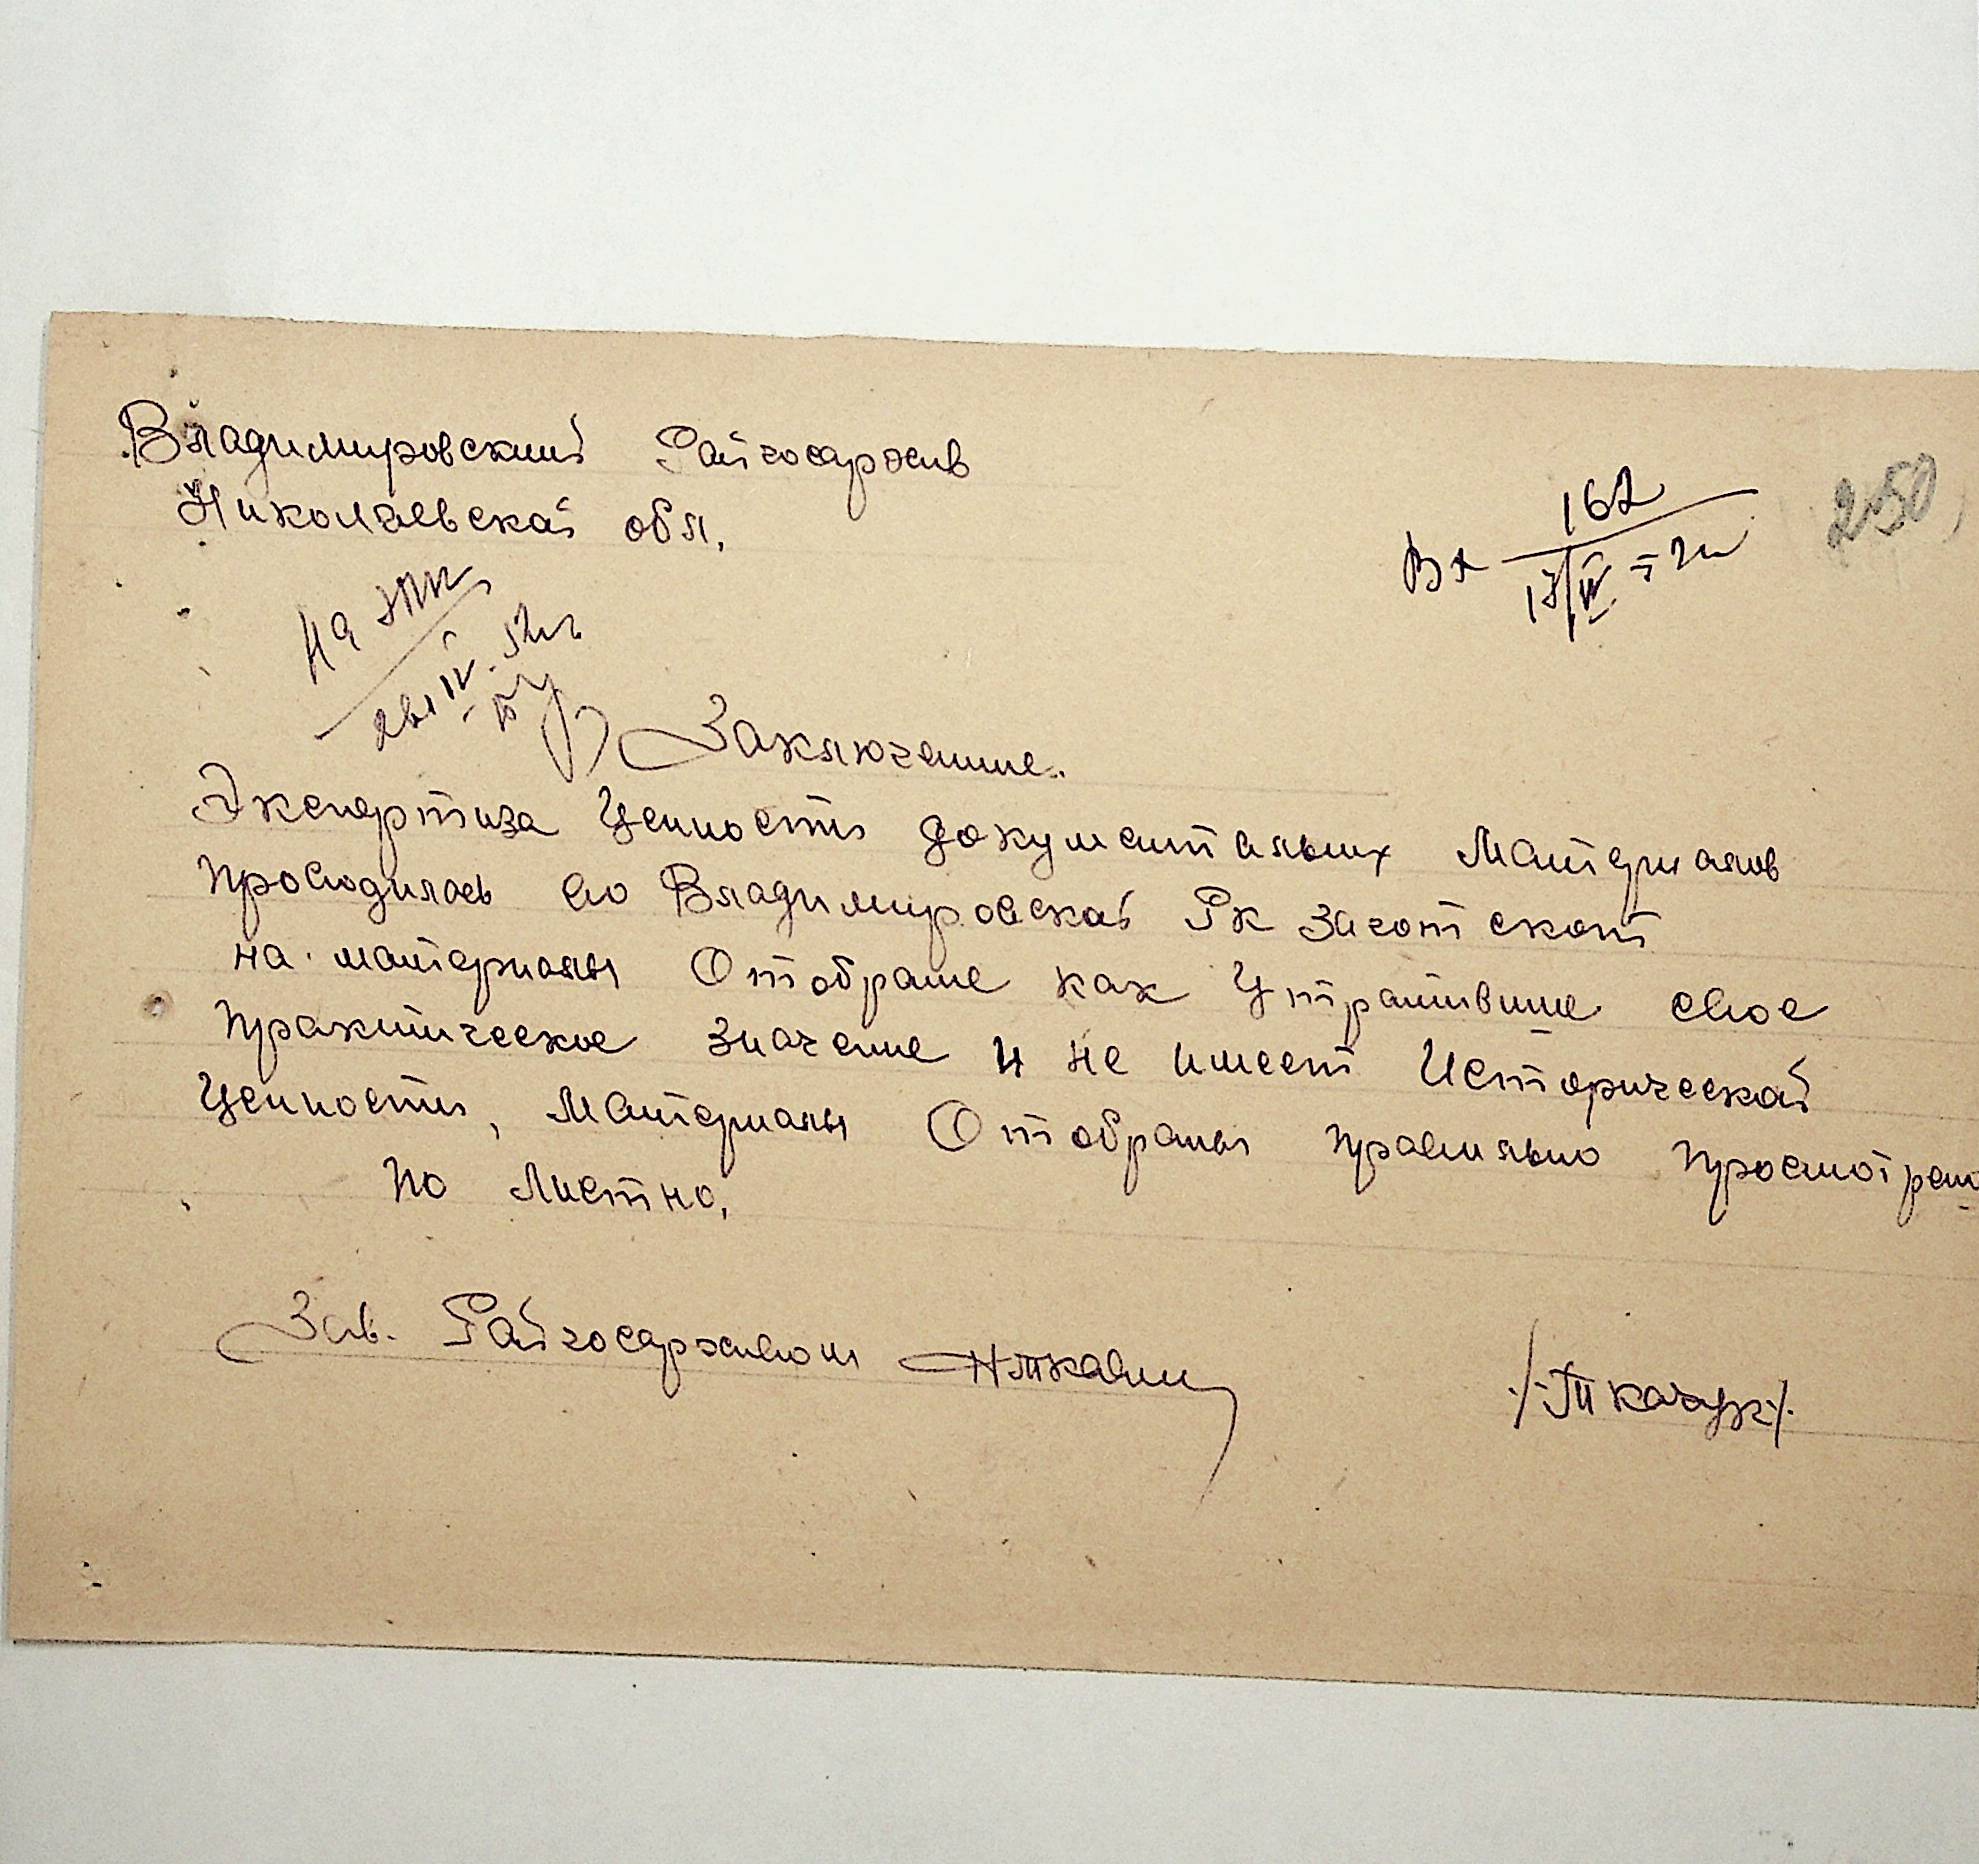 Владимировский Райгосархив
Николаевской обл.
Вх 162
17/IV 52г
250
На ЭПК
26. IV. 52г
Заключение.
Экспертиза Ценности документальных Материалов
проводилась во Владимировской Рк Заготскот
на. материалы Отобраные как Утратившие свое
практическое значение и не имеет Исторической
Ценности, Материалы Отобраны правильно просмотрены
по листно,
Зав. Райгосархивом
/-Ткачук/.